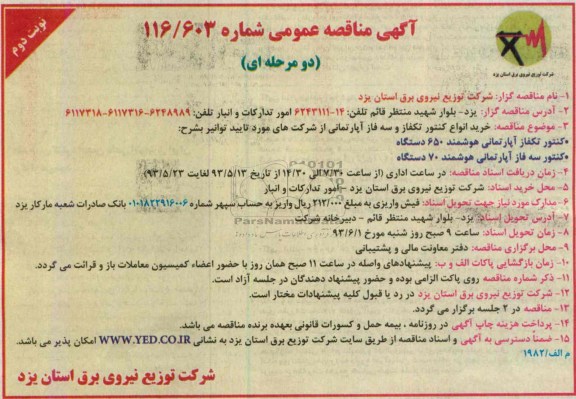 نوبت دوم
آگهی مناقصه عمومی شماره ۱۱۶/۶۰۳
(دو مرحله ای)
شرکت توزیع نیروی برق استان یزد
۱- نام مناقصه گزار: شرکت توزیع نیروی برق استان یزد
۲- آدرس مناقصه گزار: یزد- بلوار شهید منتظر قائم تلفن: ۱۴-۶۲۴۳۱۱۱ امور تدارکات و انبار تلفن: ۶۲۴۸۹۸۹-۶۱۱۷۳۱۶-۶۱۱۷۳۱۸
۳- موضوع مناقصه: خرید انواع کنتور تکفاز و سه فاز آپارتمانی از شرکت های مورد تایید توانیر بشرح:
•کنتور تکفاز آپارتمانی هوشمند ۶۵۰ دستگاه
•کنتور سه فاز آپارتمانی هوشمند ۷۰ دستگاه
۴- زمان دریافت اسناد مناقصه: در ساعت اداری (از ساعت ۷/۳۰ الی ۱۴/۳۰ از تاریخ ۹۳/۵/۱۳ لغایت ۹۳/۵/۲۳)
۵- محل خرید اسناد: شرکت توزیع نیروی برق استان یزد - امور تدارکات و انبار
۶- مدارک مورد نیاز جهت تحویل اسناد: فیش واریزی به مبلغ ۲۱۲/۰۰۰ ریال واریز به حساب سپهر شماره ۰۱۰۱۸۲۲۹۱۶۰۰۶ بانک صادرات شعبه مارکار یزد
۷- آدرس تحویل اسناد: یزد- بلوار شهید منتظر قائم - دبیرخانه شرکت
۸- زمان تحویل اسناد: ساعت ۹ صبح روز شنبه مورخ ۹۳/۶/۱
۹- محل برگزاری مناقصه: دفتر معاونت مالی و پشتیبانی
۱۰- زمان بازگشایی پاکات الف و ب: پیشنهادهای واصله در ساعت ۱۱ صبح همان روز با حضور اعضاء کمیسیون معاملات باز و قرائت می گردد.
۱۱- ذکر شماره مناقصه روی پاکت الزامی بوده و حضور پیشنهاد دهندگان در جلسه آزاد است.
۱۲- شرکت توزیع نیروی برق استان یزد در رد یا قبول کلیه پیشنهادات مختار است.
۱۳- مناقصه در ۲ جلسه برگزار می گردد.
۱۴- پرداخت هزینه چاپ آگهی در روزنامه ، بیمه حمل و کسورات قانونی بعهده برنده مناقصه می باشد.
۱۵- ضمناً دسترسی به آگهی و اسناد مناقصه از طریق سایت شرکت توزیع برق استان یزد به نشانی WWW.YED.CO.IR امکان پذیر می باشد.
م الف/۱۹۸۲
شرکت توزیع نیروی برق استان یزد